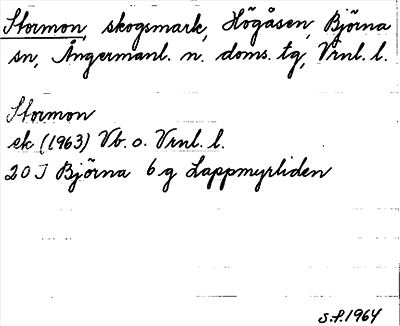 Stormon, skogsmark, Högåsen, Björna
sn, Ångermanl. n. doms. tg, Vrnl. l.
Stormon
ek (1963) Vb. o. Vrnl. l.
20 J Björna 6 g Lappmyrliden
S.f. 1964